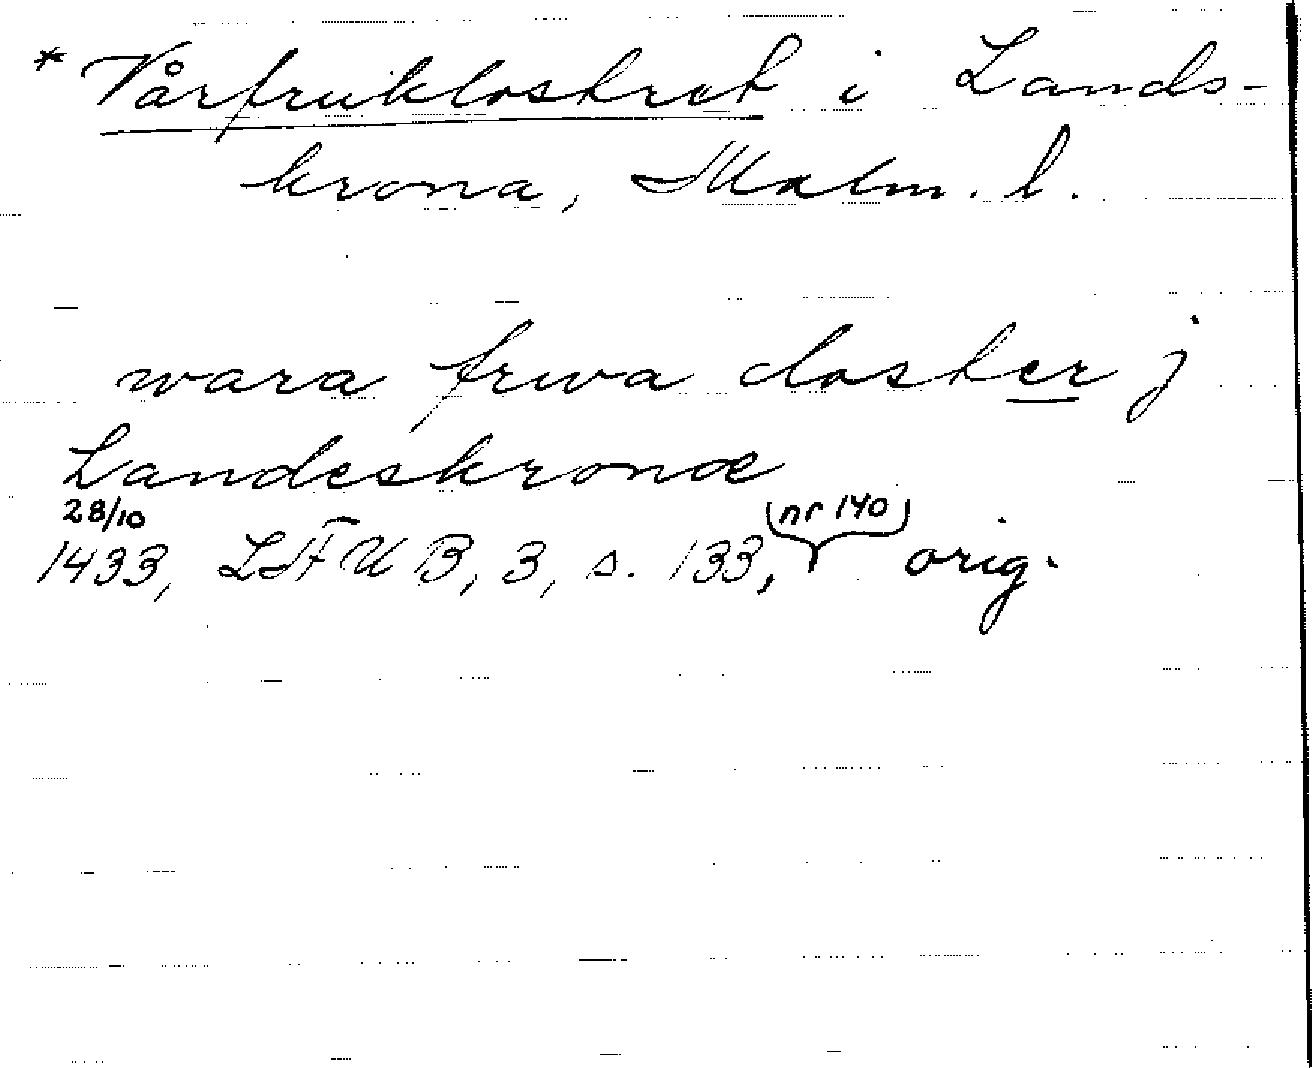 * Vårfruklostret i Lands-
krona, Malm. l.
wara frwa closter j
Landeskronæ
28/10
1433, LSFUB, 3, s. 133, (nr 140) orig.